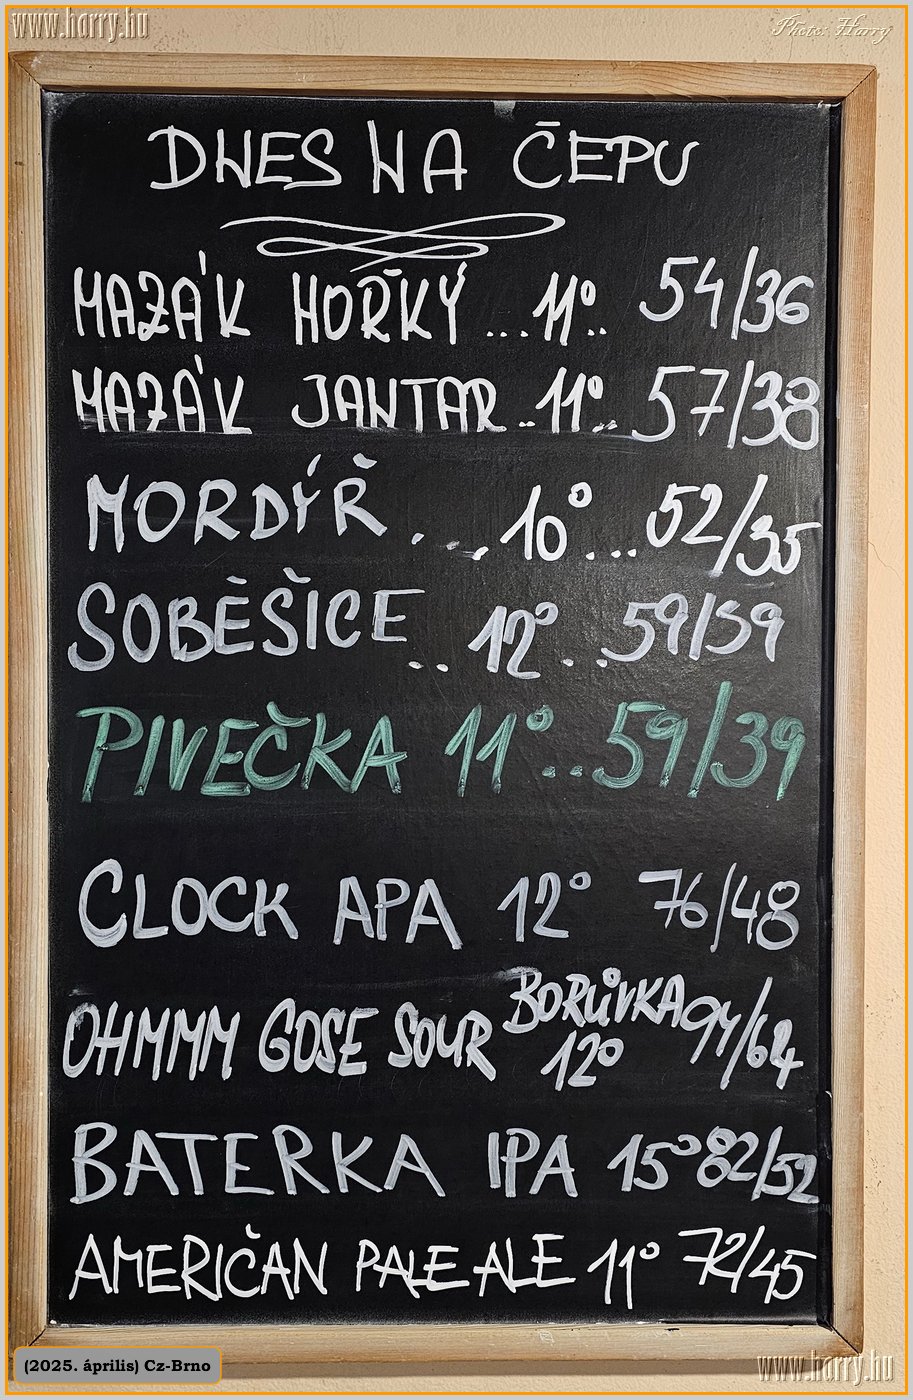 www.harry.hu
Photo: Harry
DNES NA ČEPU
MAZÁK HOŘKÝ ... 11° .. 54/36
MAZÁK JANTAR .. 11° .. 57/38
MORDÝŘ .... 10° ... 52/35
SOBĚŠICE .. 12° .. 59/39
PIVEČKA 11° .. 59/39
CLOCK APA 12° 76/48
OHMMM GOSE SOUR BORŮVKA 12° 94/64
BATERKA IPA 15° 82/52
AMERIČAN PALE ALE 11° 72/45
(2025. április) Cz-Brno
www.harry.hu